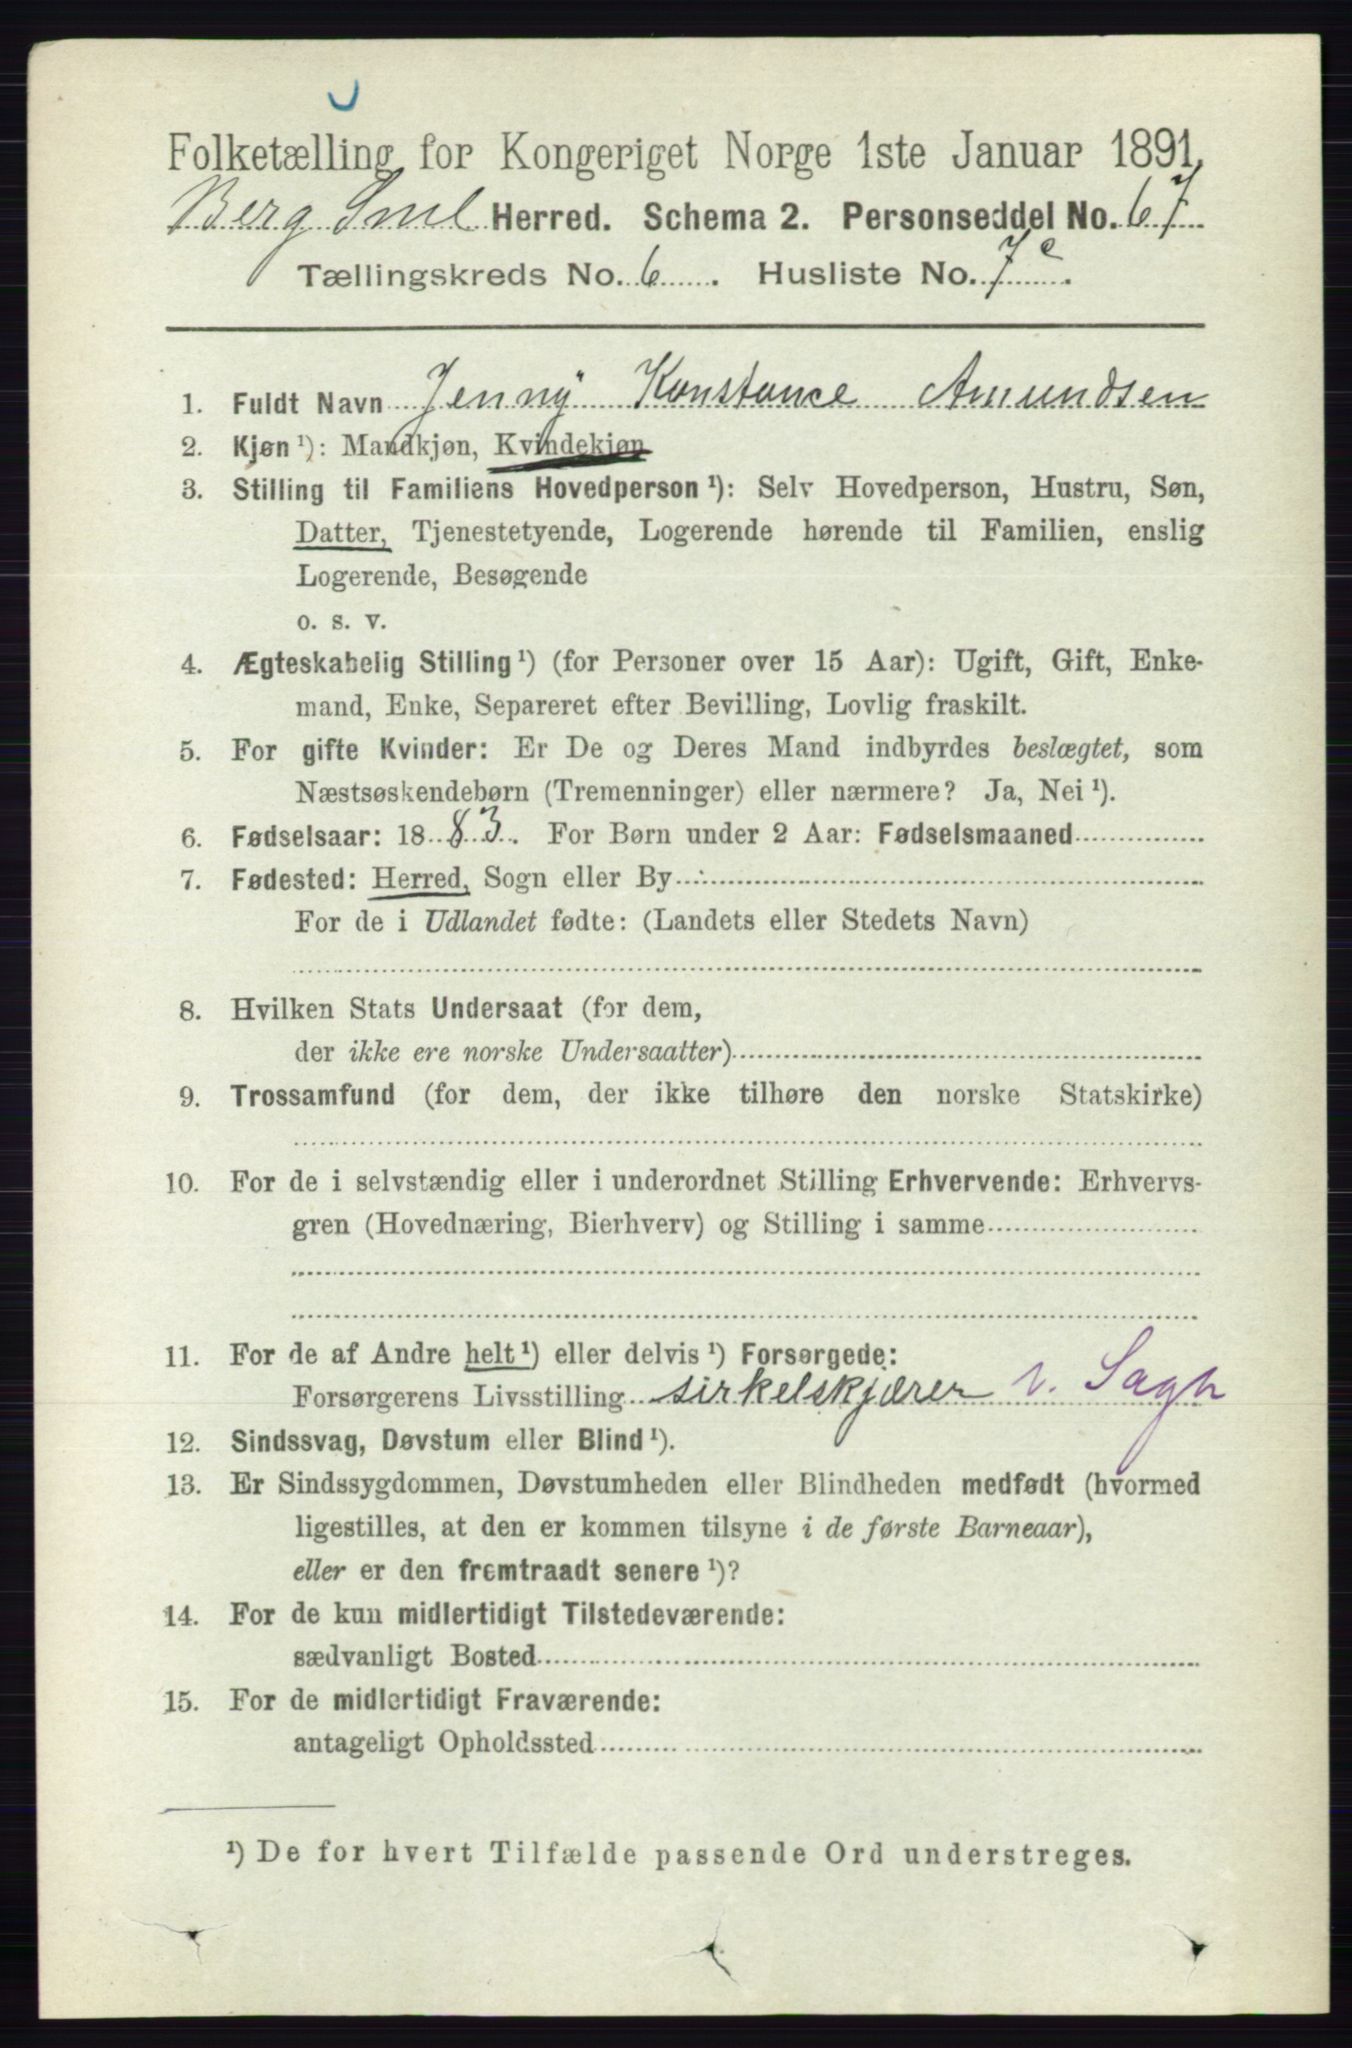 Folketælling for Kongeriget Norge 1ste Januar 1891.
Berg Sml Herred. Schema 2. Personseddel No. 67
Tællingskreds No. 6. Husliste No. 7c.
1. Fuldt Navn Jenny Konstance Amundsen
2. Kjøn ¹): Mandkjøn, Kvindekjøn
3. Stilling til Familiens Hovedperson ¹): Selv Hovedperson, Hustru, Søn,
Datter, Tjenestetyende, Logerende hørende til Familien, enslig
Logerende, Besøgende
o. s. v.
4. Ægteskabelig Stilling ¹) (for Personer over 15 Aar): Ugift, Gift, Enke-
mand, Enke, Separeret efter Bevilling, Lovlig fraskilt.
5. For gifte Kvinder: Er De og Deres Mand indbyrdes beslægtet, som
Næstsøskendebørn (Tremenninger) eller nærmere? Ja, Nei ¹).
6. Fødselsaar: 1883. For Børn under 2 Aar: Fødselsmaaned
7. Fødested: Herred, Sogn eller By
For de i Udlandet fødte: (Landets eller Stedets Navn)
8. Hvilken Stats Undersaat (for dem,
der ikke ere norske Undersaatter)
9. Trossamfund (for dem, der ikke tilhøre den norske Statskirke)
10. For de i selvstændig eller i underordnet Stilling Erhvervende: Erhvervs-
gren (Hovednæring, Bierhverv) og Stilling i samme
11. For de af Andre helt ¹) eller delvis ¹) Forsørgede:
Forsørgerens Livsstilling sirkelskjærer v. Sagbr
12. Sindssvag, Døvstum eller Blind ¹).
13. Er Sindssygdommen, Døvstumheden eller Blindheden medfødt (hvormed
ligestilles, at den er kommen tilsyne i de første Barneaar),
eller er den fremtraadt senere ¹)?
14. For de kun midlertidigt Tilstedeværende:
sædvanligt Bosted
15. For de midlertidigt Fraværende:
antageligt Opholdssted
¹) De for hvert Tilfælde passende Ord understreges.